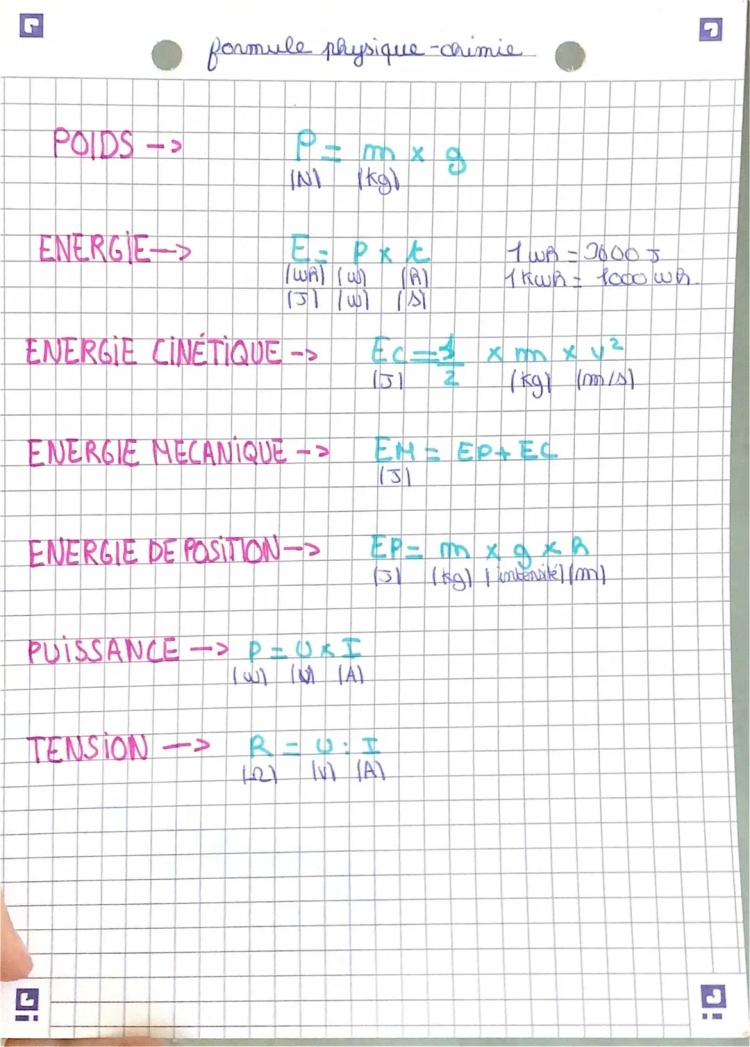 formule physique-chimie
POIDS -> P = m x g
(N) (kg)
ENERGIE -> E = P x t 1 wh = 3600 J
(wh) (w) (h) 1 kwh = 1000 wh
(J) (w) (s)
ENERGIE CINÉTIQUE -> Ec = 1/2 x m x v²
(J) (kg) (m/s)
ENERGIE MECANIQUE -> EM = EP + EC
(J)
ENERGIE DE POSITION -> EP = m x g x h
(J) (kg) (intensité) (m)
PUISSANCE -> P = U x I
(w) (V) (A)
TENSION -> R = U : I
(Ω) (V) (A)